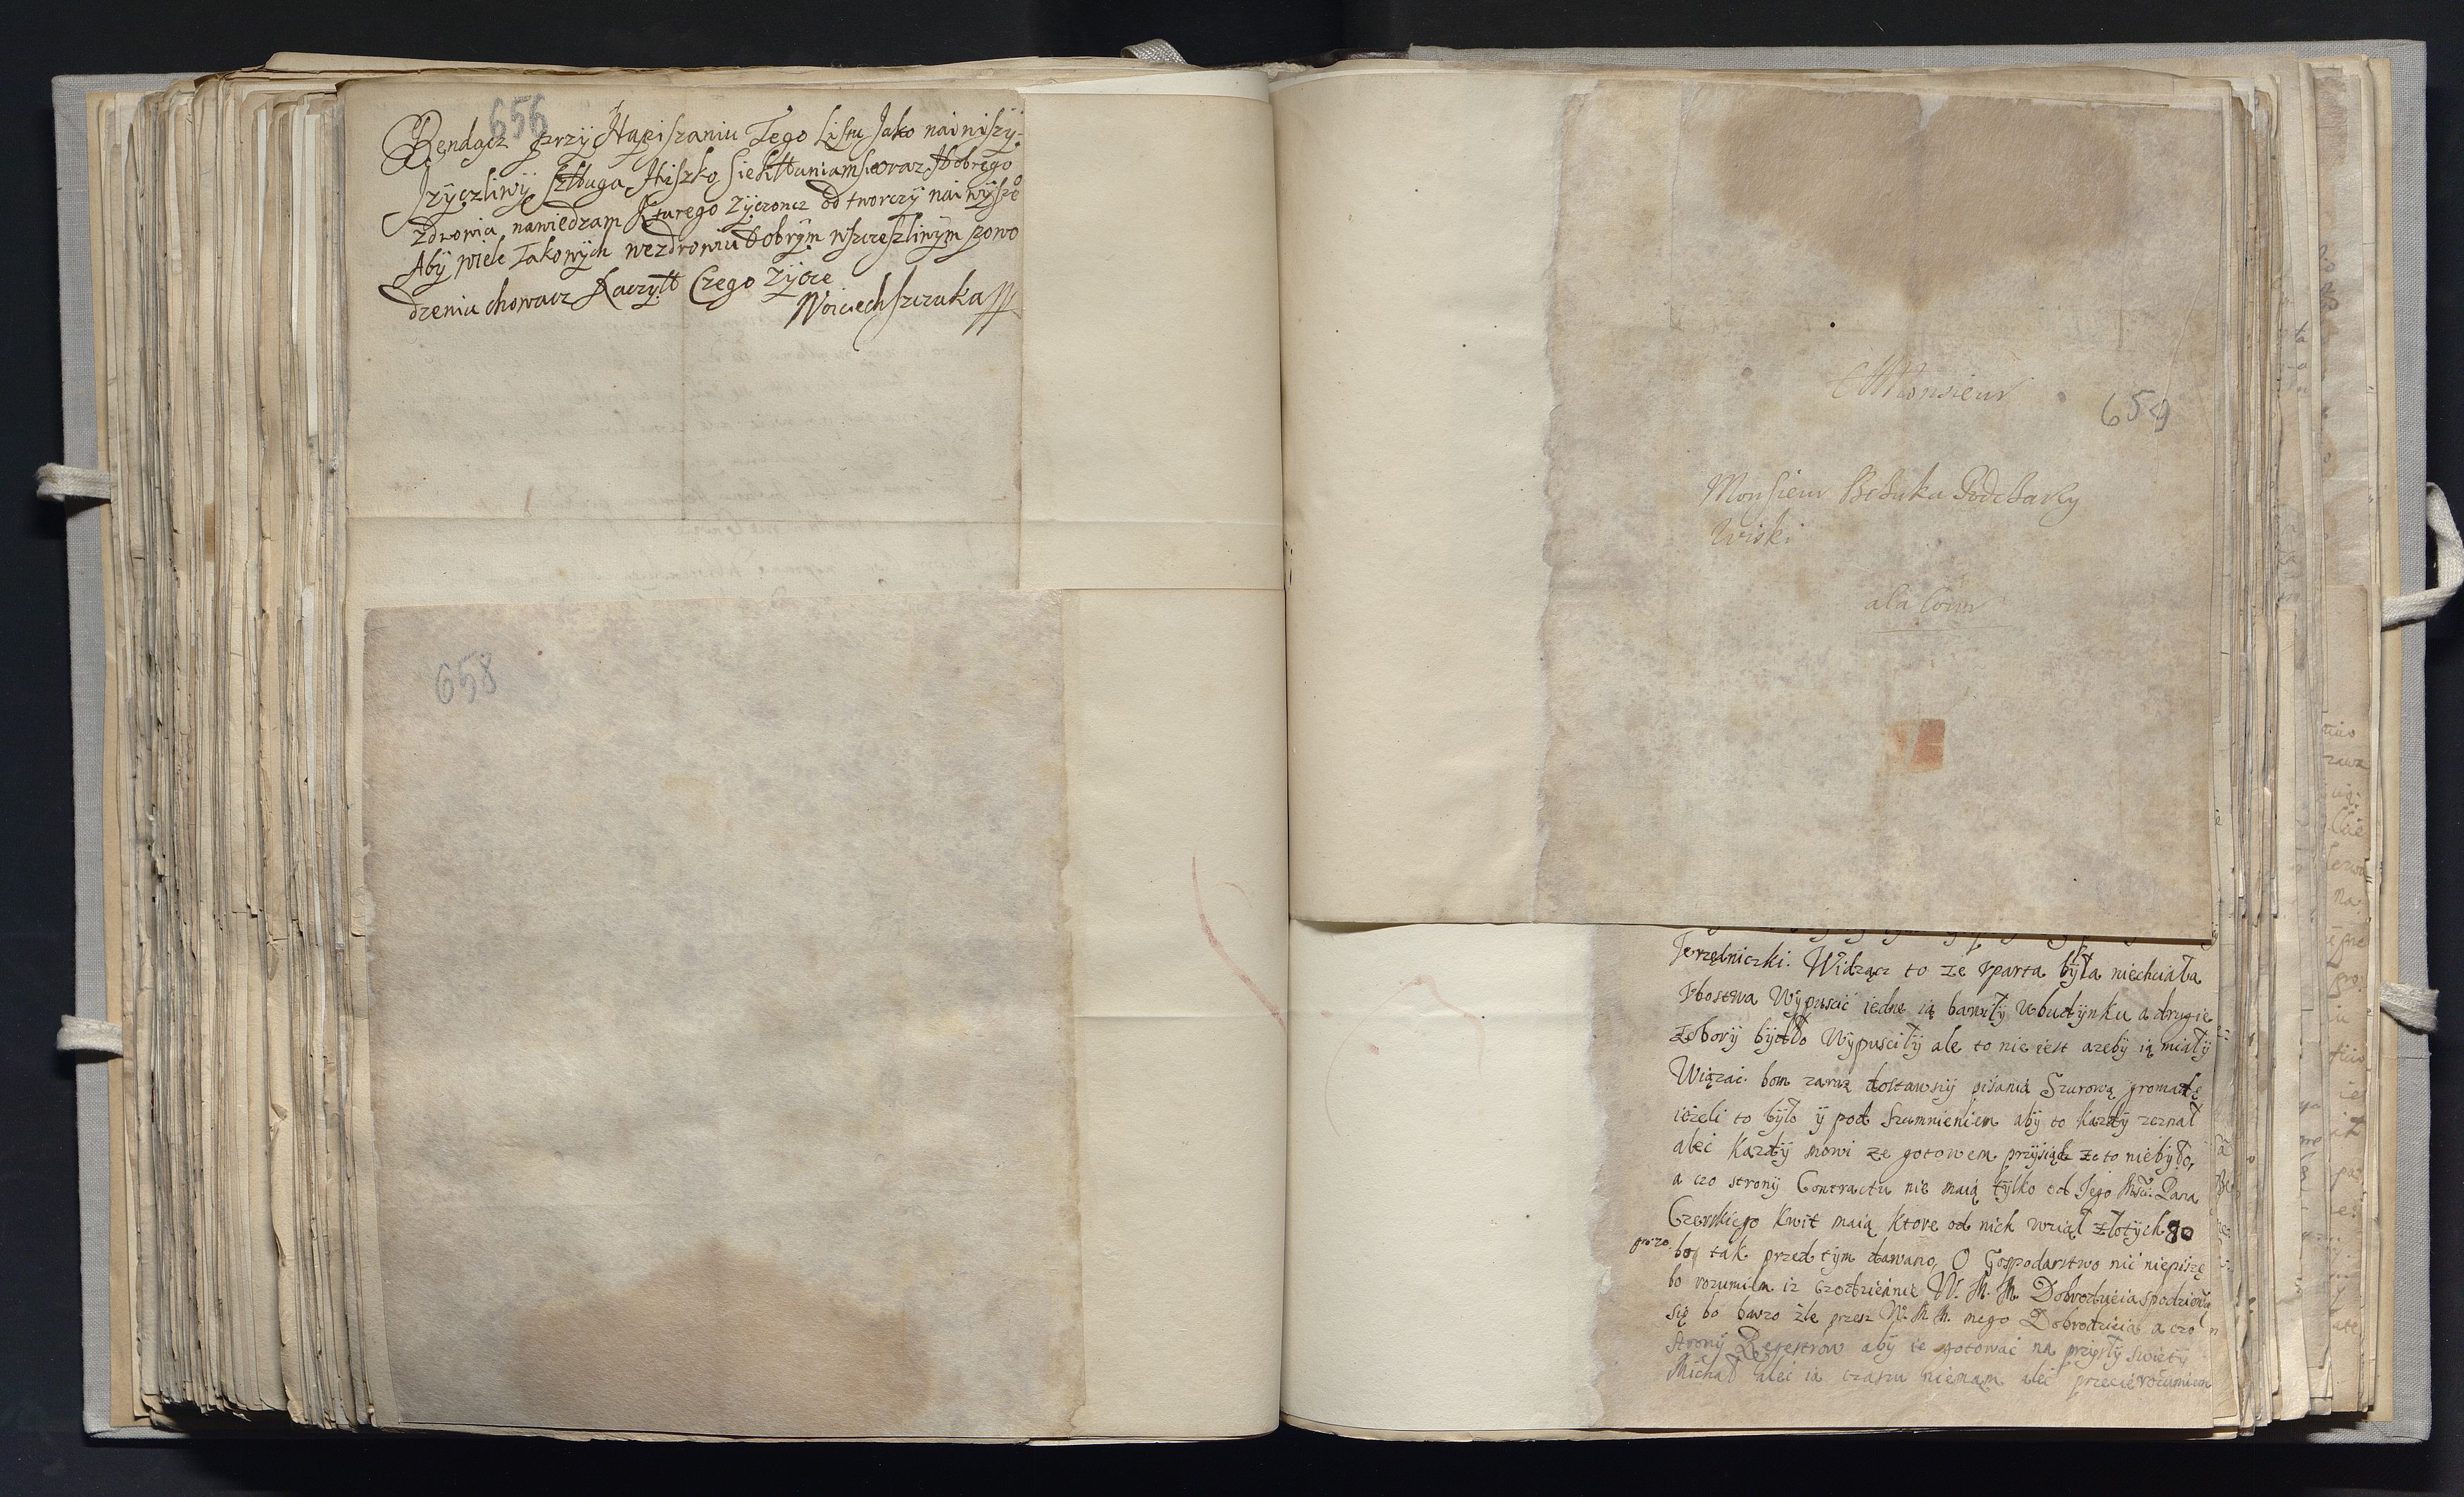 656
Bendącz przÿ Napiszaniu Tego Listu Jako nainiszÿ-
szÿczliwÿ Szługa Niszko Siekłaniam
zdrowia nawiedzam Kturego zÿczoncz od tworczÿ naiwÿsze
Abÿ wiele Takowÿch wezdrowiu dobrÿm wszczeszliwÿm powo
dzeniu chowacz Raczÿłł Czego zÿcze
Woiciech szczuka
658
Monsieur
659
Monsieur
Wiski
ala Cour
Widzącz to ze vparta bÿła niechciała
Vbostwa Wÿpuscić iedne ią bawiłÿ Wbudÿnku a drugie
zoborÿ bÿdło Wÿpusciłÿ ale to nie iest azebÿ ią miałÿ
Wiązać. bom zaraz dostawszÿ pisania gromadę
ieżeli to bÿło ÿ pod Szumnieniem abÿ to kazdÿ zeznał
aleć Kazdÿ mowi ze gotowem przÿsiądz ze to niebÿło,
a czo stronÿ Contractu nie maią tÿlko od Jego Pana
Czerskiego kwit maią ktore od nich wziął złotÿch 80
bo tak przed tÿm dawano, O Gospodarstwo nic niepiszę
bo rozumiem iz czodziennie W. M. M. Dobrodzieia spodziewą
się bo barzo źle przez W. M. M. mego Dobrodzieia a czo
stronÿ Regestrow abÿ ie gotować na przÿszłÿ swietÿ
Michał aleć ia czaszu niemam aleć przecie rozumiem